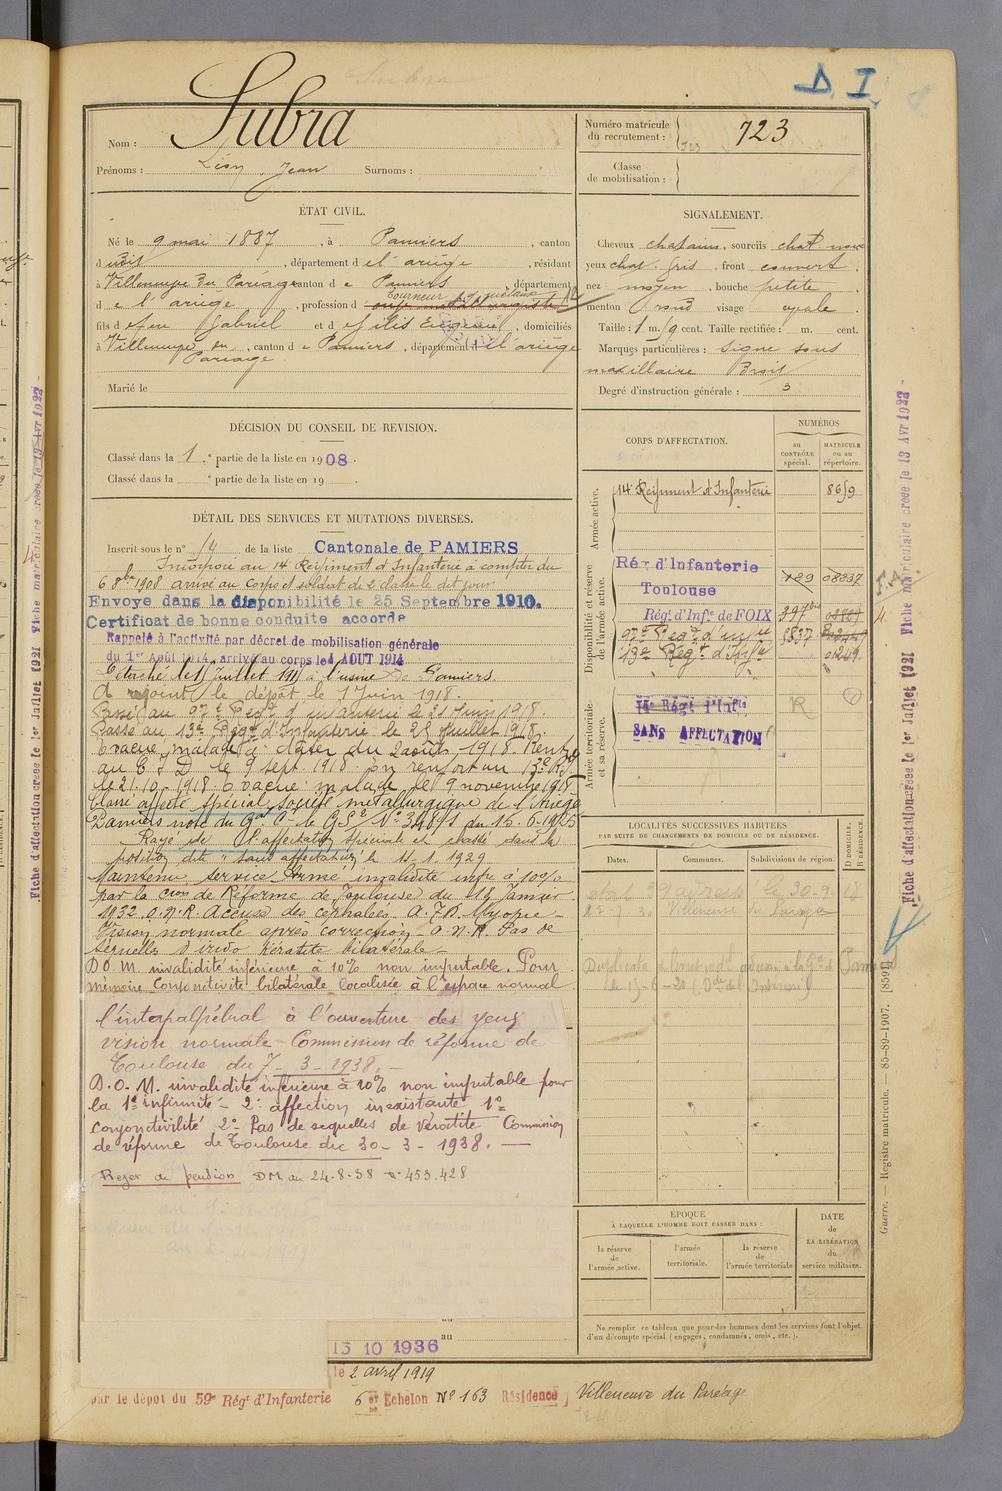 D. I.
Nom : Subra
Prénoms : Jean Surnoms :
Numéro matricule du recrutement : 723
Classe de mobilisation :
ÉTAT CIVIL.
Né le 9 mai 1887, à Pamiers, canton
d udit, département de l'ariège, résidant
à Villeneuve du Pariage canton de Pamiers, département
de l'ariège, profession d
fils de feu Gabriel et de Filis Eugénie, domiciliés
à Villeneuve du Pariage, canton de Pamiers, département de l'ariège
Marié le
SIGNALEMENT.
Cheveux chatains, sourcils chat.
yeux chat. gris, front couvert,
nez moyen, bouche petite,
menton rond visage ovale.
Taille : 1 m. cent. Taille rectifiée : m. cent.
Marques particulières : Signe sous
maxillaire Droit
Degré d'instruction générale : 3
DÉCISION DU CONSEIL DE REVISION.
Classé dans la 1re partie de la liste en 1908.
Classé dans la e partie de la liste en 19
DÉTAIL DES SERVICES ET MUTATIONS DIVERSES.
Inscrit sous le n° 14 de la liste Cantonale de PAMIERS
Incorporé au 14e Régiment d'Infanterie à compter du
6 8bre 1908 arrivé au Corps et soldat de 2e classe le dit jour
Envoyé dans la disponibilité le 25 Septembre 1910.
Certificat de bonne conduite accordé
Rappelé à l'activité par décret de mobilisation générale
du 1er Août 1914, arrivé au corps le 4 AOUT 1914
Détaché le juillet 191 à l'usine de Pamiers.
A rejoint le dépôt le 1 Juin 1918.
Passé au 97e Régt d'infanterie le 21 Juin 1918.
Passé au 13e Régt d'Infanterie le 25 juillet 1918.
Evacué malade à dater du 2 août 1918. Rentré
au C I D le 9 sept. 1918 en renfort au 13e R.I.
le 21.10.1918. Evacué malade le 9 novembre 1918
Classé affecté spécial, Société métallurgique de l'Ariège
Pamiers note du
Rayé de l'affectation spéciale et classé dans la
position dite "sans affectation" le 15.1.1929
Maintenu service Armé invalidité infre à 10%
par la Cion de Réforme de Toulouse du 18 Janvier
1932. O.N.R. Accuse des céphalées. Myopie -
Vision normale après correction - O.N.R. Pas de
séquelles d'irido kératite bilatérale -
D.O.M. invalidité inférieure à 10% non imputable. Pour
mémoire Conjonctivite bilatérale localisée à l'espace normal
l'interpalpébral à l'ouverture des yeux
vision normale - Commission de réforme de
Toulouse du 7 - 3 - 1938. -
D.O.M. invalidité inférieure à 10% non imputable pour
la 1e infirmité - 2e affection inexistante 1e=
conjonctivité 2e- Pas de sequelles de Kératite Commission
de réforme de Toulouse du 30 - 3 - 1938. -
Rejet de pension DM du 24.8.38 n° 453.428
au
au
15 10 1936
le 2 avril 1919
par le dépôt du 59e Régt d'Infanterie 6e Echelon N° 163 Résidence Villeneuve du Paréage
CORPS D'AFFECTATION.
NUMÉROS
au CONTRÔLE spécial.
MATRICULE ou au répertoire.
Armée active.
14e Régiment d'Infanterie 8659
Disponibilité et réserve de l'armée active.
Rég. d'Infanterie 789 08837
Toulouse
Régt d'Infie de FOIX 397bis
97e Régt d'infie 5837
13e Régt d'Infie 01249
Armée territoriale et sa réserve.
Régt d'Infie R
SANS AFFECTATION
LOCALITÉS SUCCESSIVES HABITÉES
PAR SUITE DE CHANGEMENTS DE DOMICILE OU DE RÉSIDENCE.
Dates. Communes. Subdivisions de région. D DOMICILE. R RÉSIDENCE.
Villeneuve du Pareage
ÉPOQUE
À LAQUELLE L'HOMME DOIT PASSER DANS :
la réserve de l'armée active.
l'armée territoriale.
la réserve de l'armée territoriale
DATE de LA LIBÉRATION du service militaire.
Ne remplir ce tableau que pour les hommes dont les services font l'objet
d'un décompte spécial (engagés, condamnés, omis, etc.).
Fiche d'affectation créée le 1er Juillet 1921 Fiche matriculaire créée le 13 Avr 1922
Fiche d'affectation créée le 1er Juillet 1921 Fiche matriculaire créée le 13 Avr 1922
Guerre. — Registre matricule. — 85-89-1907. [8591]